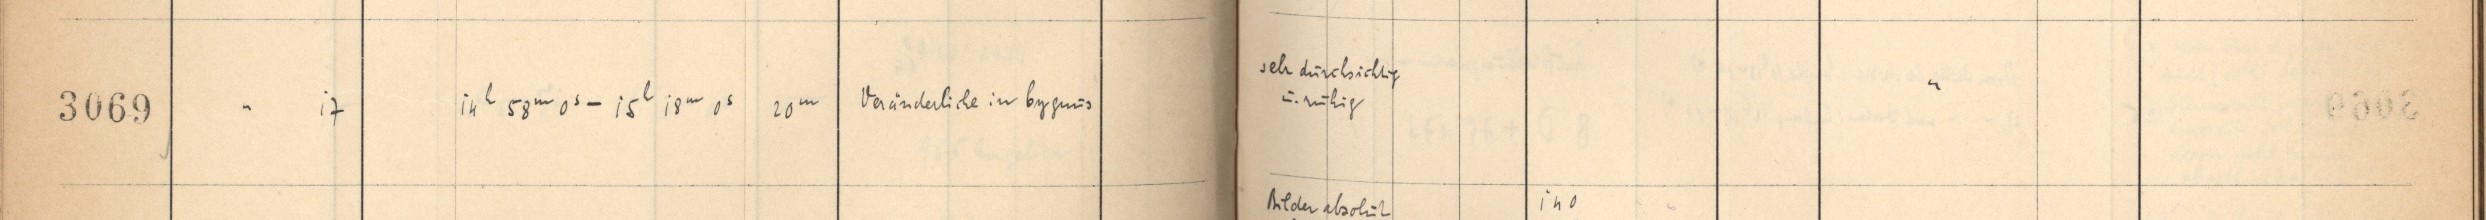 3069 " 17 14ʰ 58ᵐ 0ˢ – 15ʰ 18ᵐ 0ˢ 20ᵐ Veränderliche im Cygnus
sehr durchsichtig
u. ruhig
"
Bilder absolut
140